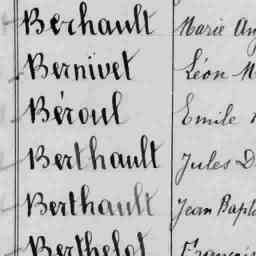 Berhault Marie
Bernivet Léon
Béroul Emile
Berthault Jules
Berthault Jean
Berthelot